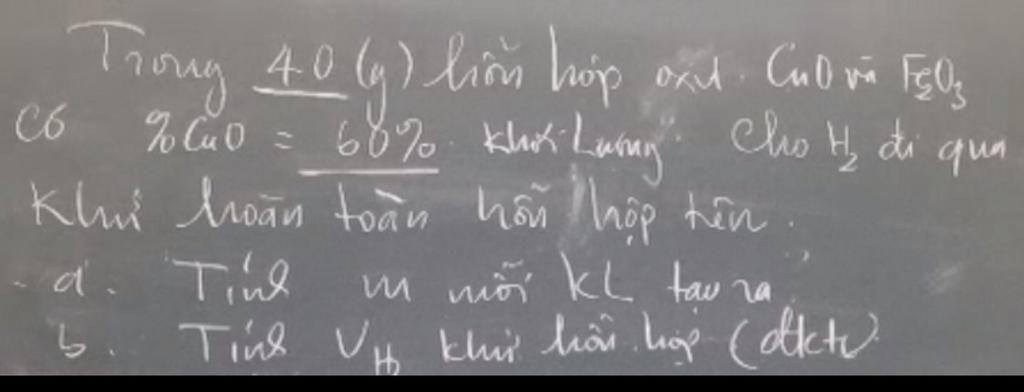 Trong 40 (g) hỗn hợp oxit. CuO và Fe2O3
Có %CuO = 60% khối lượng. Cho H2 đi qua
Khử hoàn toàn hỗn hợp trên.
a. Tính m mỗi KL tạo ra
b. Tính VH2 khử hỗn hợp (đktc)